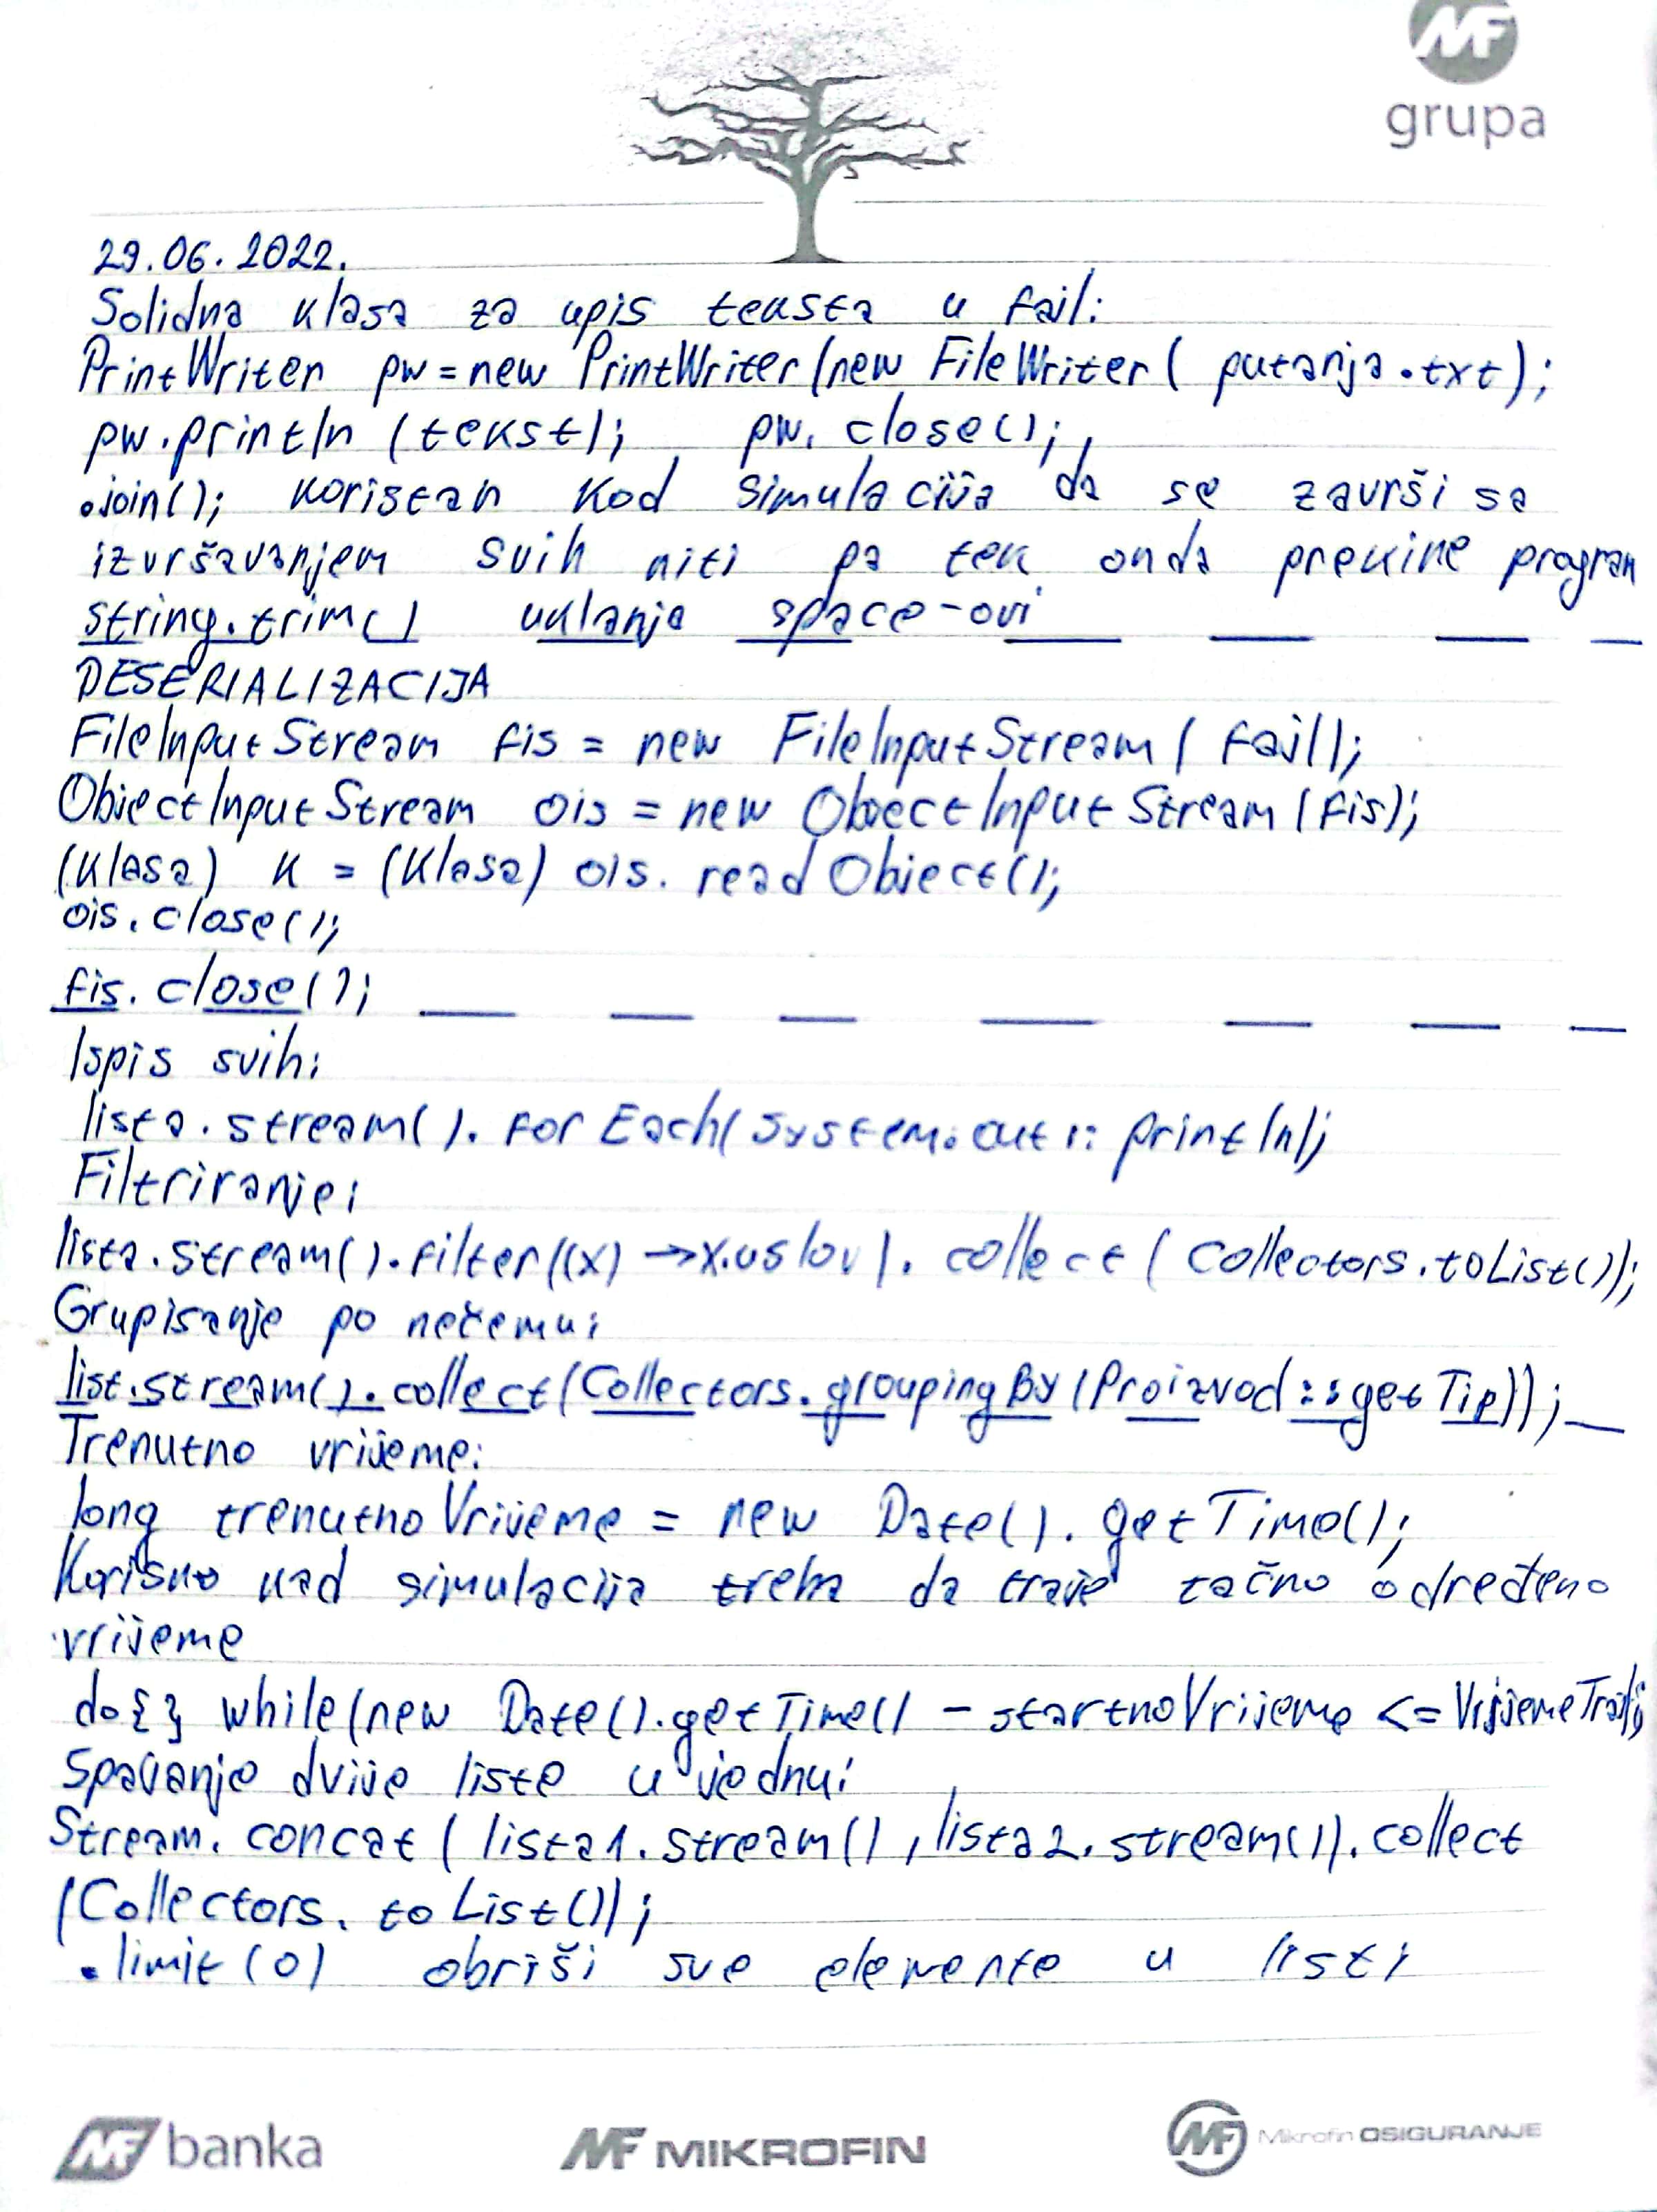 MF
grupa
29.06.2022.
Solidna klasa za upis teksta u fajl:
PrintWriter pw = new PrintWriter(new FileWriter( putanja.txt);
pw.println (tekst); pw. close();
.join(); koristan kod simulacija da se završi sa
izvršavanjem svih niti pa tek onda prekine program
string.trim() uklanja space-ovi
DESERIALIZACIJA
FileInputStream fis = new FileInputStream( fajl);
ObjectInputStream ois = new ObjectInputStream(fis);
(Klasa) k = (Klasa) ois. readObject();
ois.close();
fis. close();
Ispis svih:
lista.stream(). forEach(System.out :: println);
Filtriranje:
lista.stream().filter((x) →x.uslov). collect ( Collectors.toList());
Grupisanje po nečemu:
list.stream().collect(Collectors.groupingBy(Proizvod::getTip));
Trenutno vrijeme:
long trenutnoVrijeme = new Date(). getTime();
Korisno kad simulacija treba da traje tačno određeno
vrijeme
do{} while(new Date().getTime() - startnoVrijeme <=
Spajanje dvije liste u jednu:
Stream. concat ( lista1.stream(), lista2.stream()). collect
(Collectors. toList());
.limit (0) obriši sve elemente u listi
MF banka
MF MIKROFIN
MF Mikrofin OSIGURANJE